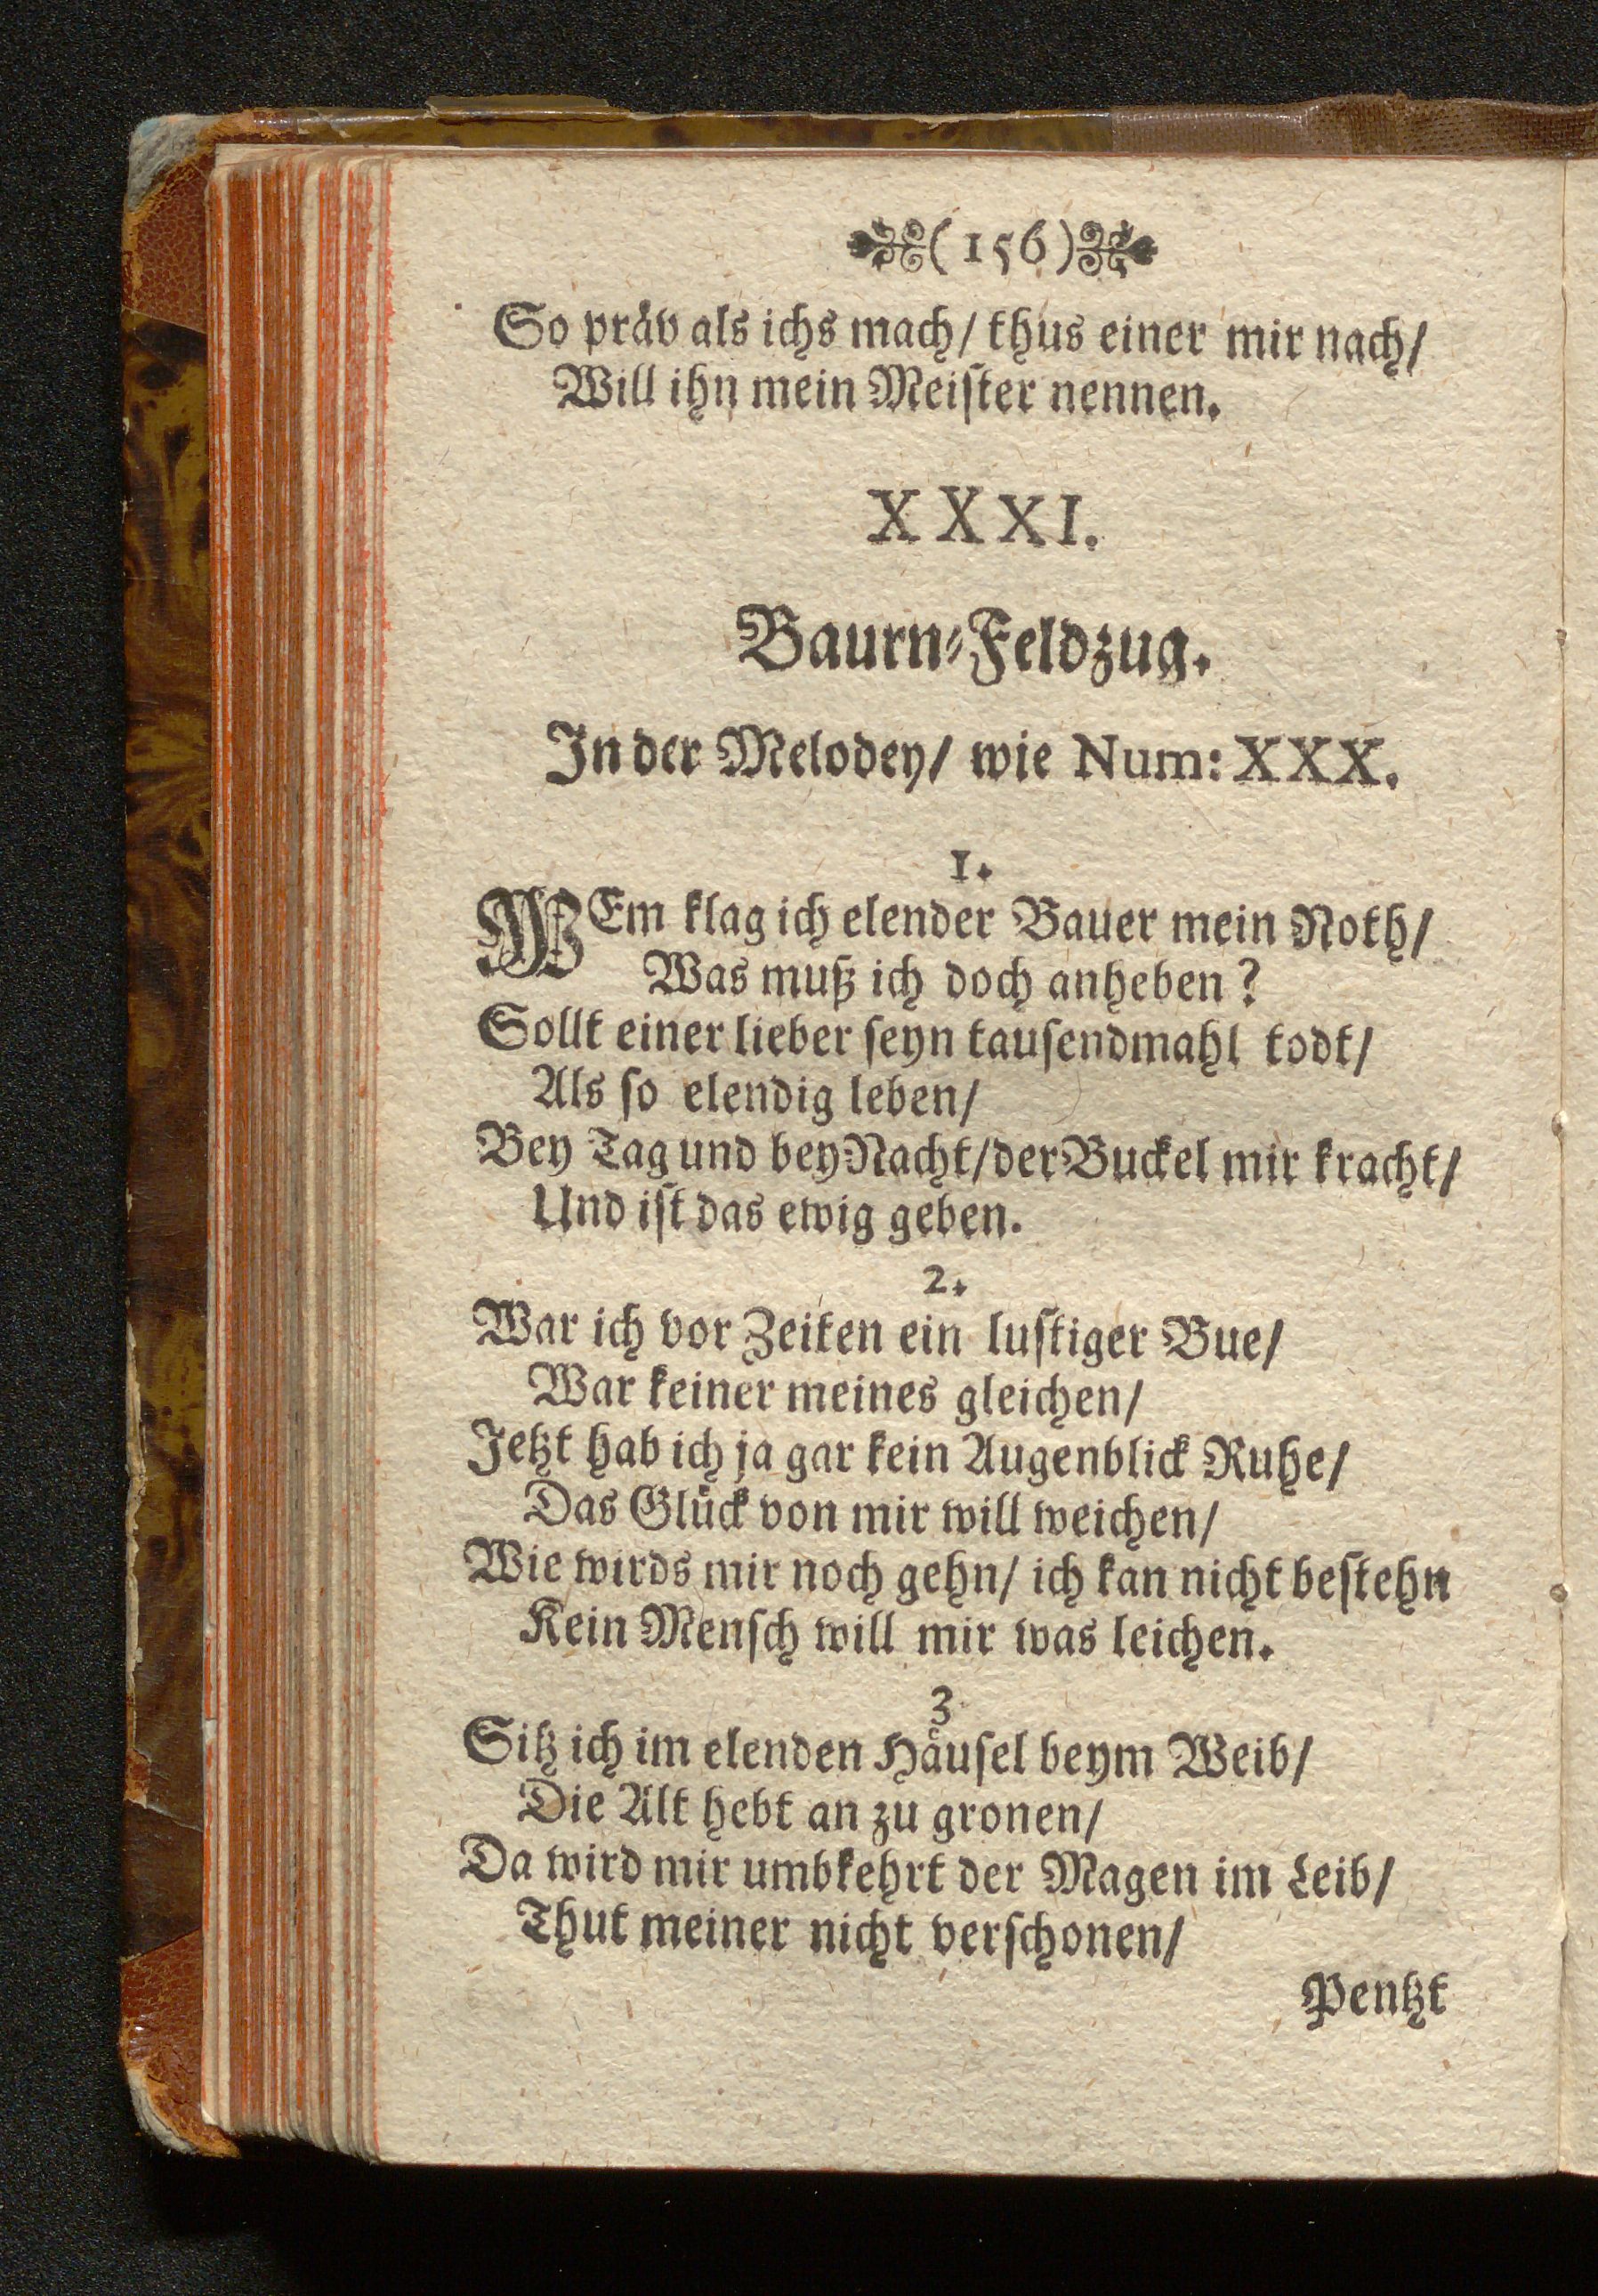 (156)
So präv als ichs mach/ thus einer mir nach/
Will ihn mein Meiſter nennen.
XXXI.
Baurn⸗Feldzug.
In der Melodey/ wie Num: XXX.
1.
WEm klag ich elender Bauer mein Noth/
Was muß ich doch anheben?
Sollt einer lieber ſeyn tauſendmahl todt/
Als ſo elendig leben/
Bey Tag und bey Nacht/ der Buckel mir kracht/
Und iſt das ewig geben.
2.
War ich vor Zeiten ein luſtiger Bue/
War keiner meines gleichen/
Jetzt hab ich ja gar kein Augenblick Ruhe/
Das Glück von mir will weichen/
Wie wirds mir noch gehn/ ich kan nicht beſtehn
Kein Menſch will mir was leichen.
3
Sitz ich im elenden Häuſel beym Weib/
Die Alt hebt an zu gronen/
Da wird mir umbkehrt der Magen im Leib/
Thut meiner nicht verſchonen/
Pentzt